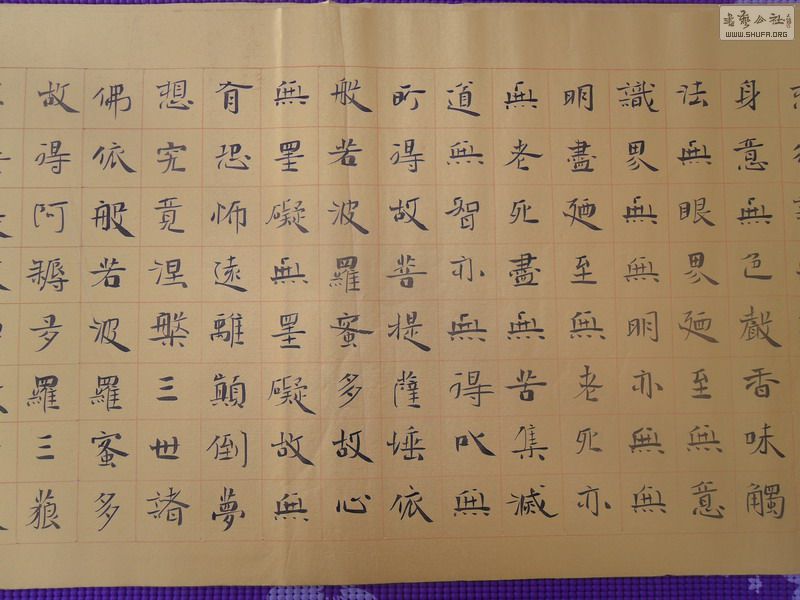 身意無色聲香味觸
法無眼界廼至無意
識界無無明亦無無
明盡廼至無老死亦
無老死盡無苦集滅
道無智亦無得㕥無
所得故菩提薩埵依
般若波羅蜜多故心
無罣礙無罣礙故無
有恐怖遠離顛倒夢
想究竟涅槃三世諸
佛依般若波羅蜜多
故得阿耨多羅三藐
書藝公社
WWW.SHUFA.ORG